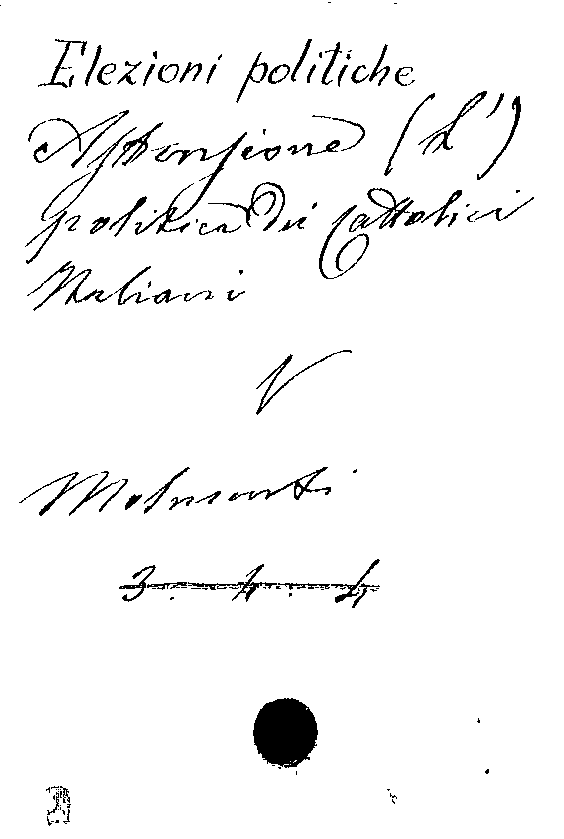 Elezioni politiche
Astensione (L')
politica dei Cattolici
Italiani
V
Molmenti
3. 4. 4